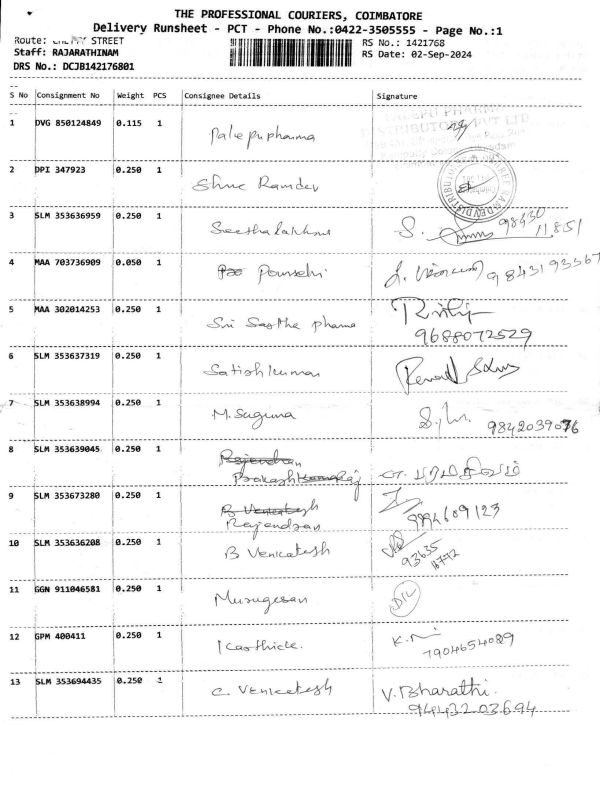 THE PROFESSIONAL COURIERS, COIMBATORE
Delivery Runsheet - PCT - Phone No.:0422-3505555 - Page No.:1
Route: STREET
Staff: RAJARATHINAM
DRS No.: DCJB142176801
RS No.: 1421768
RS Date: 02-Sep-2024
S No Consignment No Weight PCS Consignee Details Signature
1 DVG 850124849 0.115 1 Palepu pharma
2 DPI 347923 0.250 1 Shree Ramdev
3 SLM 353636959 0.250 1 Seetha Lakshmi S. 98430
11851
4 MAA 703736909 0.050 1 Pounselvi 9843193567
5 MAA 302014253 0.250 1 Sri Sastha pharma
9688072529
6 SLM 353637319 0.250 1 Satishkumar
7 SLM 353638994 0.250 1 M. Suguna 9842039076
8 SLM 353639045 0.250 1 Rajendran
Prakash பரமசிவம்
9 SLM 353673280 0.250 1 B Venkatesh
Rajendran 9994689123
10 SLM 353636208 0.250 1 B Venkatesh 93635
11772
11 GGN 911046581 1 Murugesan
12 GPM 400411 0.250 1 Karthick. K.
7904654089
13 SLM 353694435 0.250 1 C. Venkatesh V. Bharathi.
94432 03694